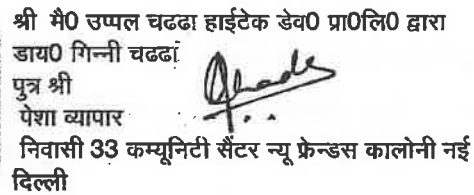 श्री मै0 उप्पल चढढा हाईटेक डेव0 प्रा0लि0 द्वारा
डाय0 गिन्नी चढढा
पुत्र श्री
पेशा व्यापार
निवासी 33 कम्यूनिटी सैंटर न्यू फ्रेन्डस कालोनी नई
दिल्ली